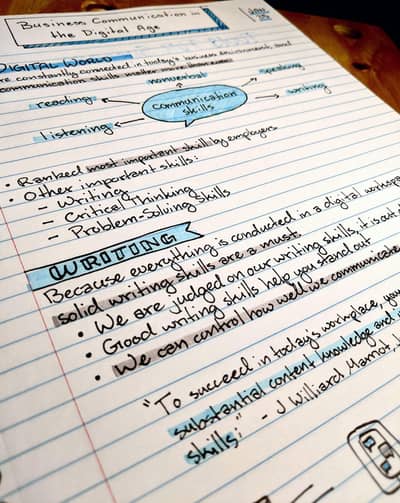 Business Communication in
the Digital Age
DIGITAL WORLD
constantly connected in today's business environment, and
communication skills matter more
nonverbal
speaking
reading
communication
skills
writing
listening
• Ranked most important skill by employers
• Other important skills:
- Writing
- Critical Thinking
- Problem-Solving Skills
WRITING
Because everything is conducted in a digital workspace
solid writing skills are a must.
• We are judged on our writing skills, it is out
• Good writing skills help you stand out
• We can control how well we communicate
"To succeed in today's workplace, you
substantial content knowledge and
skills." - J Williard Marriot,